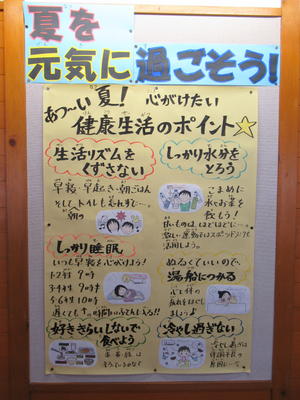 夏を
元気に過ごそう!
あつ〜い夏! 心がけたい
健康生活のポイント☆
生活リズムを
くずさない
早寝・早起き・朝ごはん
そして、トイレも忘れずに…
しっかり水分を
とろう
こまめに
水やお茶を
飲もう!
しっかり睡眠
いつも早寝を心がけよう!
1・2年生 9時
3・4年生 9時
5・6年生 10時
ぬるくていいので、
湯船につかる
心と体の
疲れをほぐし
ましょう
好ききらいしないで
食べよう
冷やし過ぎない
冷やし過ぎは
体調不良の
原因に…